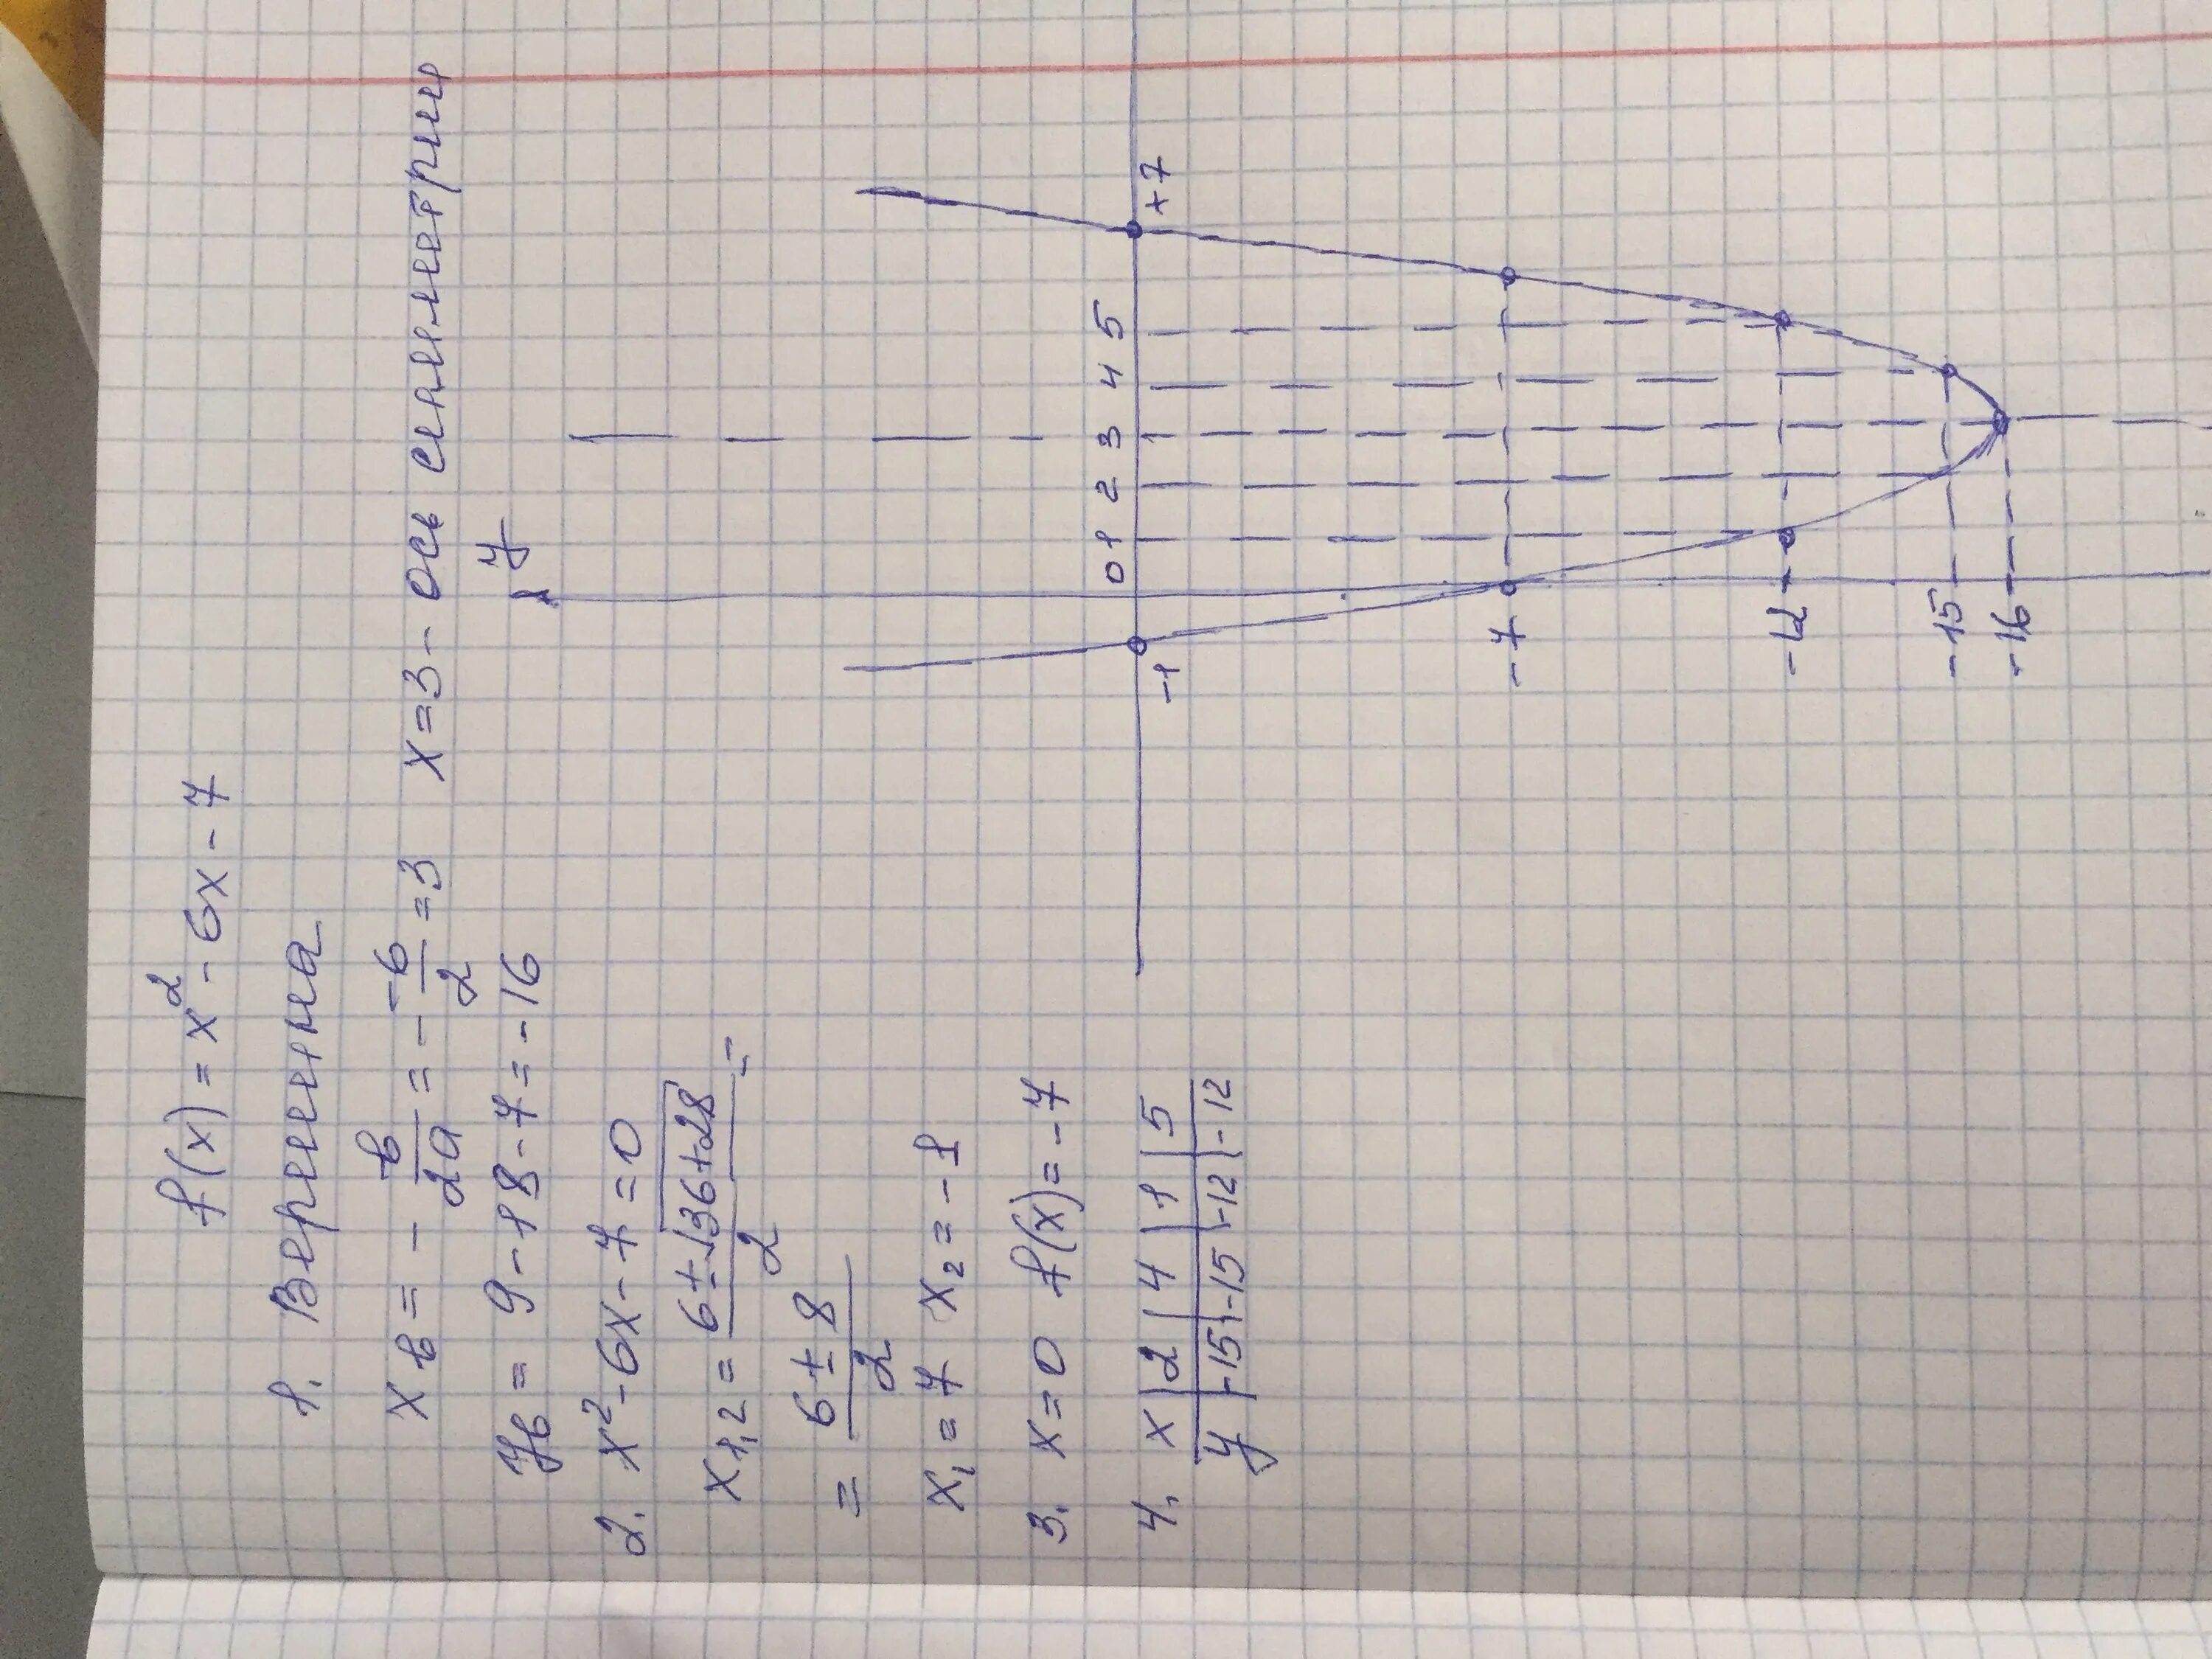 f(x) = x² - 6x - 7
1. Вершина
xв = - в/2a = - -6/2 = 3 x = 3 - ось симметрии
yв = 9 - 18 - 7 = -16
2. x² - 6x - 7 = 0
x1,2 = (6 ± √36+28)/2 =
= (6 ± 8)/2
x₁ = 7 x₂ = -1
3. x = 0 f(x) = -7
4. x | 2 | 4 | 1 | 5
y | -15 | -15 | -12 | -12
y
-1 0 1 2 3 4 5 +7
-7
-12
-15
-16